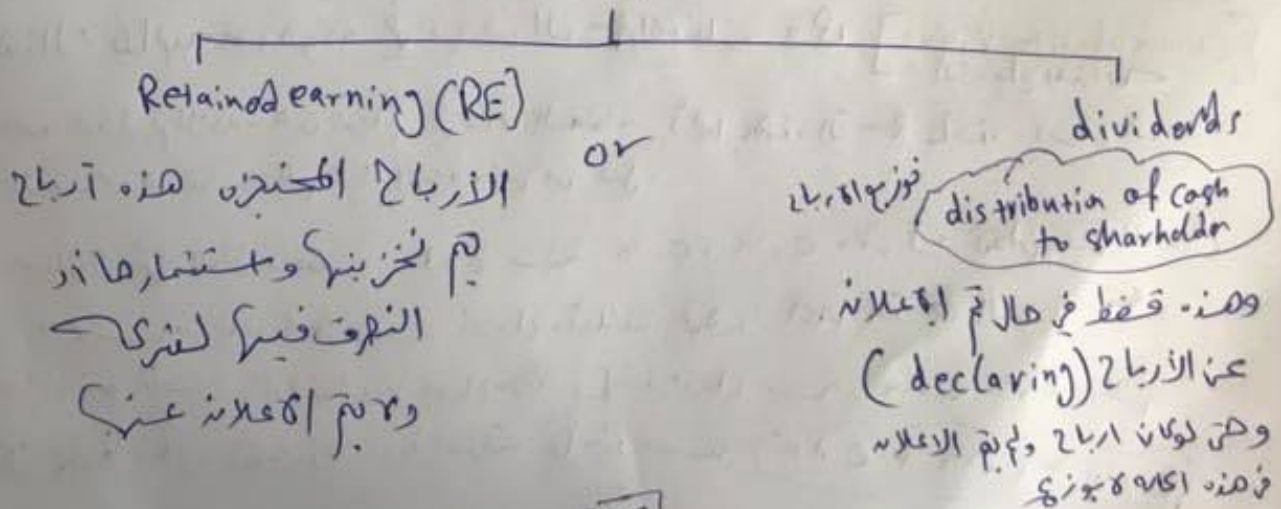 Retained earning (RE)
الأرباح المحتجزه هذه أرباح
يتم تخزينها واستثمارها أو
التصرف فيها
ولا يتم الاعلان عنها
or
dividends
توزيع الارباح
distribution of cash
to sharholder
وهذه فقط في حال تم الاعلان
عن الأرباح (declaring)
وحتى لو كان ارباح ولم يتم الاعلان
في هذه الحاله لا يوزع